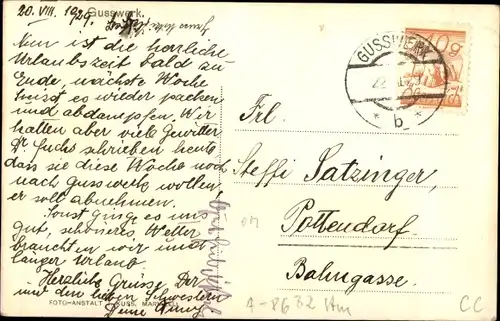 20. VIII. 1929.
Gusswerk.
Nun ist die herrliche
Urlaubszeit bald zu
Ende, nächste Woche
heisst es wieder packen
und abdampfen. Wir
hatten aber viele Gewitter
Dr. Fuchs schrieben heute
dass sie diese Woche noch
nach Gusswerk wollen,
er soll abnehmen.
Sonst ginge es uns
gut, schöneres Wetter
brauchten wir und
länger Urlaub
Herzliche Grüsse Dir
und den lieben Schwestern
Deine
FOTO-ANSTALT KUSS, MARIAZELL
GUSSWERK
* b *
Frl.
Steffi Satzinger,
Pottendorf
Bahngasse.
A-8632 Stm
CC